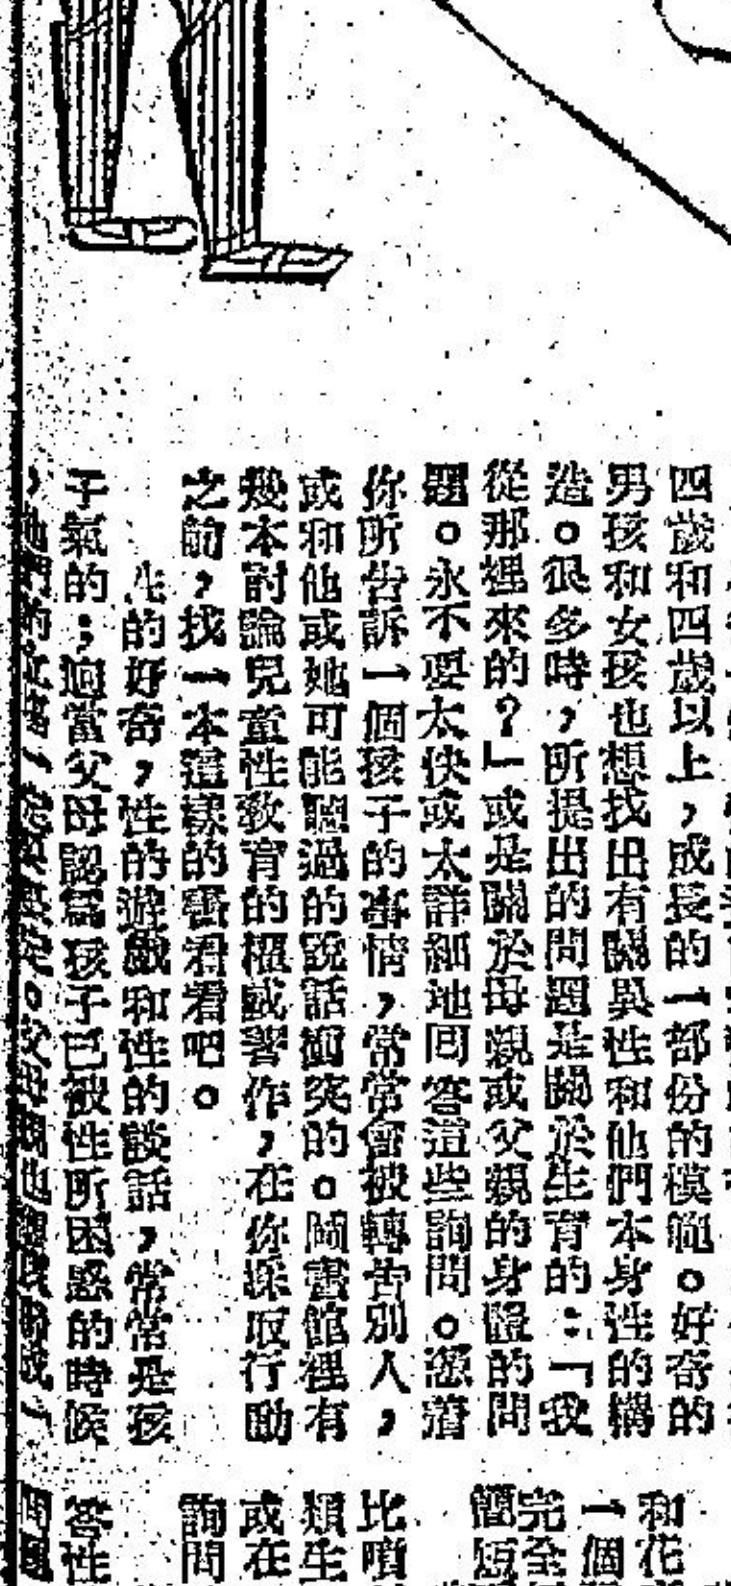 四歲和四歲以上，成長的一部份的模範。好奇的
男孩和女孩也想找出有關異性和他們本身性的構
造。很多時，所提出的問題是關於生育的：「我
從那裡來的？」或是關於母親或父親的身體的問
題。永不要太快或太詳細地回答這些詢問。憑著
你所告訴一個孩子的事情，常常會被轉告別人，
或和他或她可能聽過的說話衝突的。圖書館裡有
幾本討論兒童性教育的權威著作，在你採取行動
之前，找一本這樣的書看看吧。
的好奇，性的遊戲和性的談話，常常是孩
子氣的；迨當父母認爲孩子已被性所困惑的時候
和花
一個
完全
簡短
比噴
類生
或在
詢問
答性
問題